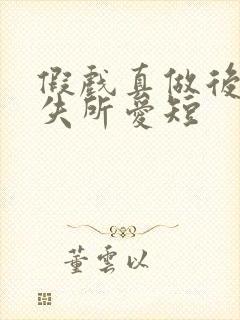 假戲真做後
失所愛短
董雲以